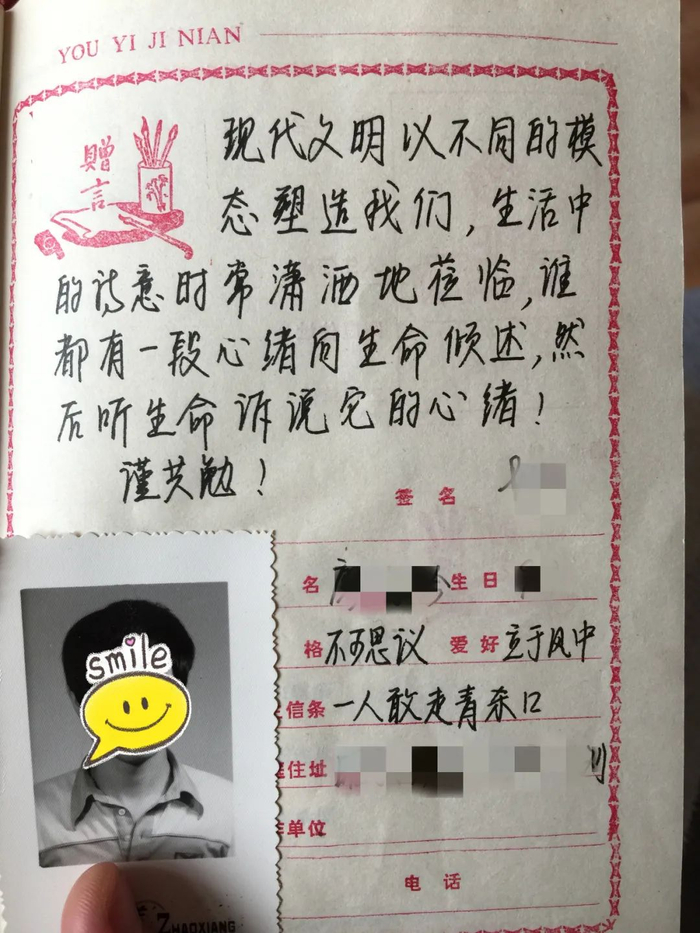 YOU YI JI NIAN
赠言
现代文明以不同的模
态塑造我们,生活中
的诗意时常潇洒地莅临,谁
都有一段心绪向生命倾述,然
后听生命诉说它的心绪!
谨共勉!
签名
名 生日
格 不可思议 爱好 立于风中
信条 一人敢走青杀口
住址
单位
电话
smile
ZHAOXIANG